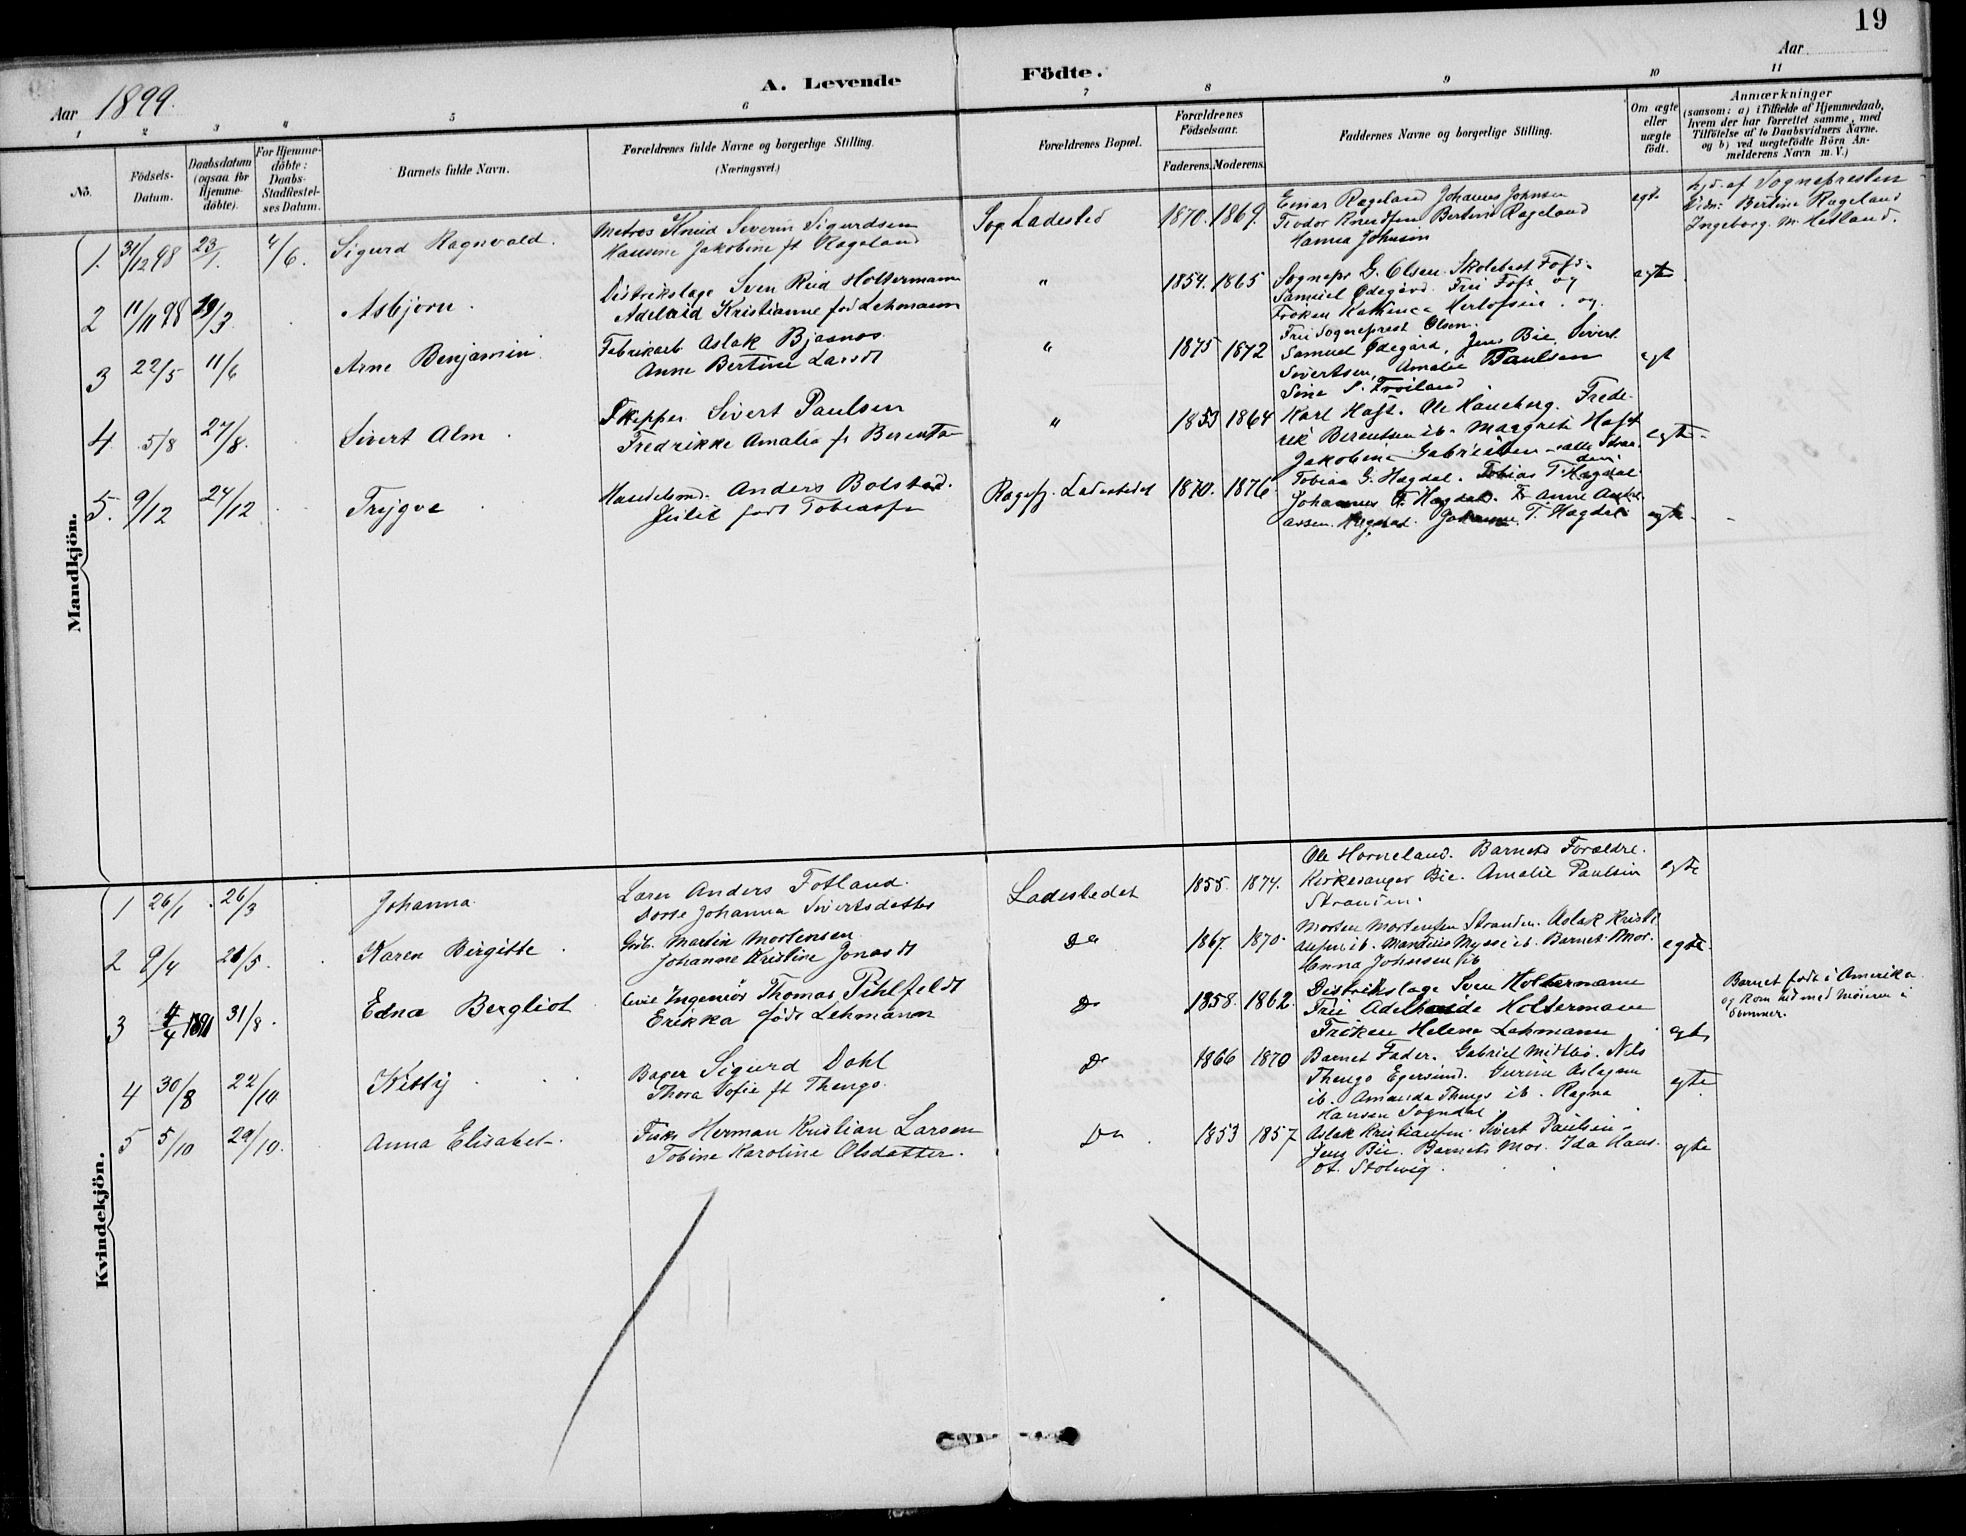 19
Aar 1899.
A. Levende Födte.
Aar
1 2 3 4 5 6 7 8 9 10 11
No.
Födsels-Datum.
Daabsdatum (ogsaa for Hjemme-döbte).
For Hjemme-döbte: Daabs-Stadfæstel-ses Datum.
Barnets fulde Navn.
Forældrenes fulde Navne og borgerlige Stilling.
(Næringsvei.)
Forældrenes Bopæl.
Forældrenes Födselsaar.
Faderens. Moderens.
Faddernes Navne og borgerlige Stilling.
Om ægte eller uægte født.
Anmærkninger
(saasom: a) i Tilfælde af Hjemmedaab,
hvem der har forrettet samme, med
Tilföielse af to Daabsvidners Navne.
og b) ved uægtefödte Börn An-
melderens Navn m. V.)
Mandkjön.
1. 31/12 98 23/1. 4/6. Sigurd Ragnvald.
Matros Knud Severin Sigurdsen
Hansine Jakobine ft Rageland
Sog. Ladested 1870. 1869.
Einar Rageland Johannes Johnsen
Teodor Knudsen Bertine Rageland
Hanna Johnsen
egt.
hjd. af Sognepresten
Vidn: Bertine Rageland
Ingeborg M. Hetland.
2 11/11 98 19/3 Asbjorn.
Distrikslage Sven Riid Holtermann
Adelaid Kristianne fød Lehmann
" 1854. 1865
Sognepr G. Olsen. Skolebest Foss.
Samuel Ødegård. Fru Foss og
Frøken Kathinca Herlofsen. og
Fru Sogneprest Olsen.
egte
3 22/5 11/6 Arne Benjamin
Fabrikarb Aslak Bjaanes
Anne Bertine Larsdt
" 1875 1872
Samuel Ødegård, Jens Bie, Sivert
Sivertsen, Amalie Paulsen
Sine S. Frøiland
egt
4. 5/8 27/8. Sivert Alm.
Skipper Sivert Paulsen
Fredrikke Amalia f. Berents
" 1853 1864
Karl Haft. Ole Haneberg. Frede-
rik Berentsen ib. Margrete Haft
Jakobine Gabrielsen - alle Stran-
den
egte.
5. 9/12 24/12 Trygve
Handelsmd. Anders Bolstad.
Julie født Tobiassen
Ragefj. Ladestedet 1870. 1876
Tobias G. Hagdal. Tobias T. Hagdal
Johannes T. Hagdal. Anne Andre-
assen. Johanne T. Hagdal
egte
Kvindekjön.
1 26/1 26/3 Johanna
Lærer Anders Fotland.
Dorte Johanna Sivertsdatter
Ladestedet 1855. 1874.
Ole Horneland. Barnets Forældre.
Kirkesanger Bie. Amalie Paulsen
Stranden.
egte
2 9/4 21/5. Karen Birgitte.
Martin Mortensen
Johanne Kristine Jonasdt
Do 1867. 1870.
Morten Mortensen Stranden. Aslak Kristi-
ansen ib. Mandius Mysse ib. Barnets Mor.
Hanna Johnsen ib
egte.
3 4/4 1891 31/8. Edna Bergliot
Civil Ingeniør Thomas Pihlfeldt
Erikka født Lehmann
Do 1858. 1862.
Distrikslage Sven Holtermann
Fru Adelheide Holtermann
Frøken Helena Lehmann
egte
Barnet født i Amerika
og kom ned med Moren i
Sommer.
4 30/8 22/10 Kitty
Bager Sigurd Dahl
Thora Sofie ft Thengs
Do 1866 1870
Barnet Fader. Gabriel Mittbø. Nils
Thengs Egersund. Gurine Aslagsen
ib. Amanda Thengs ib. Ragna
Hansen Sogndal
egte
5 5/10 29/10. Anna Elisabet.
Fisk. Herman Kristian Larsen
Tobine Karoline Olsdatter.
Do 1853 1857
Aslak Kristiansen. Sivert Paulsen.
Jens Bie. Barnets Mor. Ida Hans-
dt. Stolevig.
egte